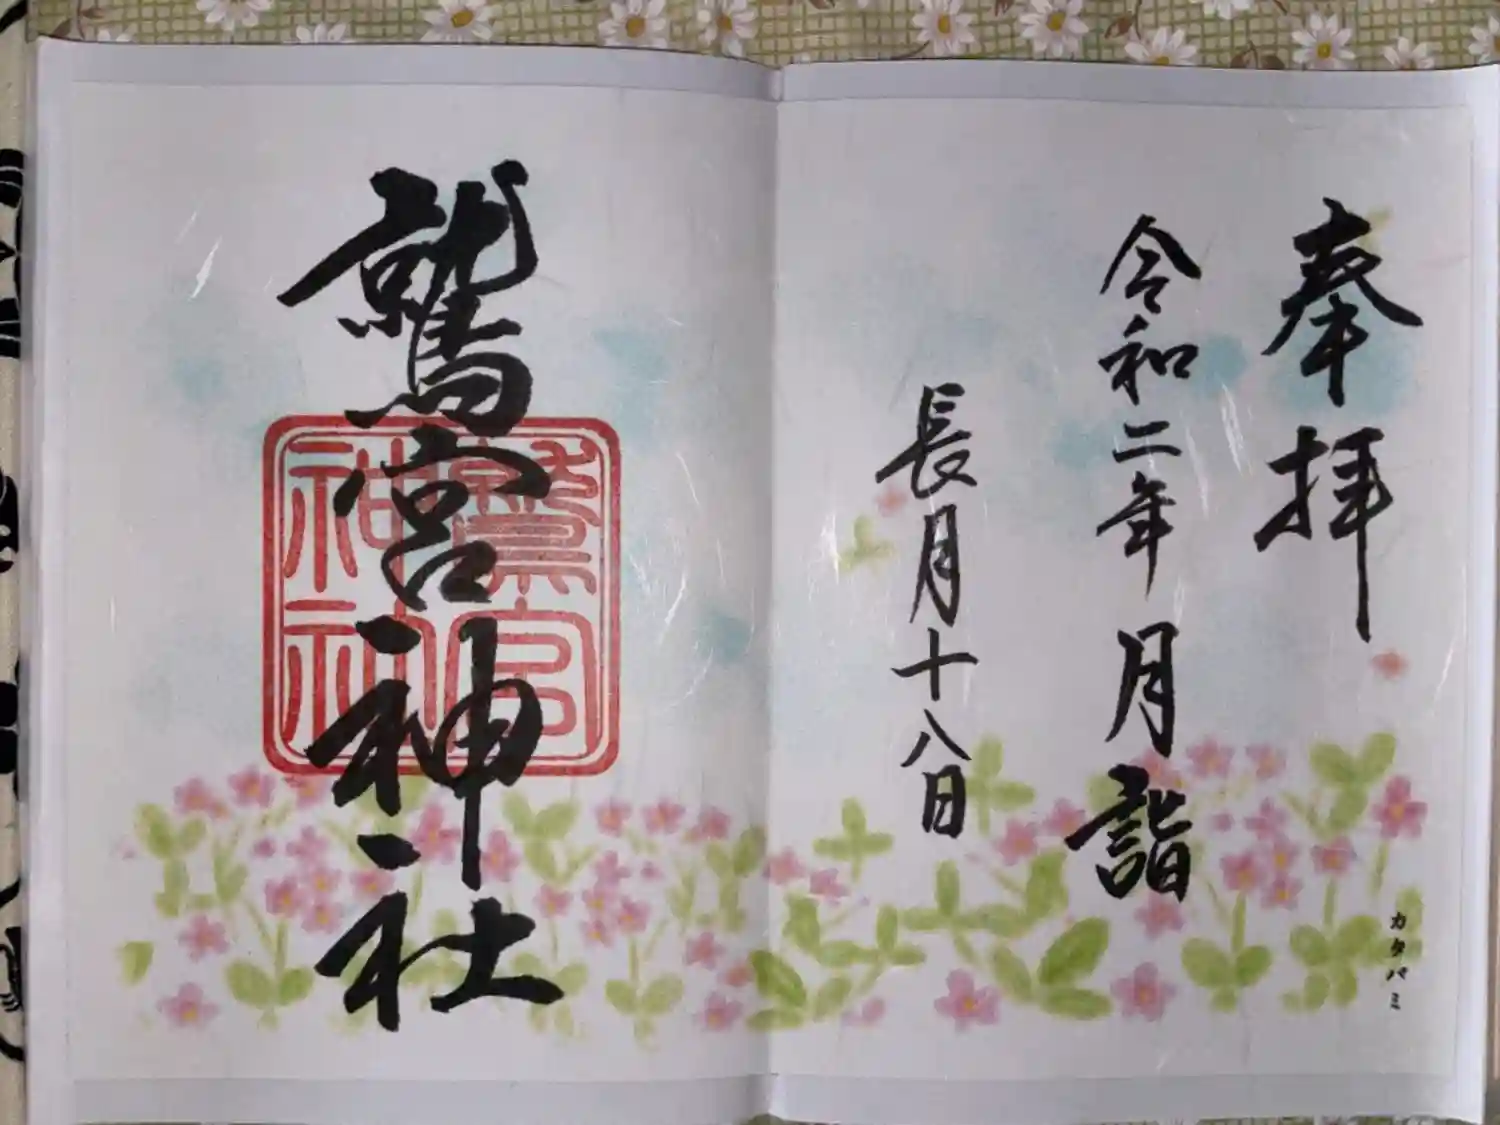 奉拝
令和二年 月詣
長月十八日
カタバミ
鷲宮神社
鷲宮
神社